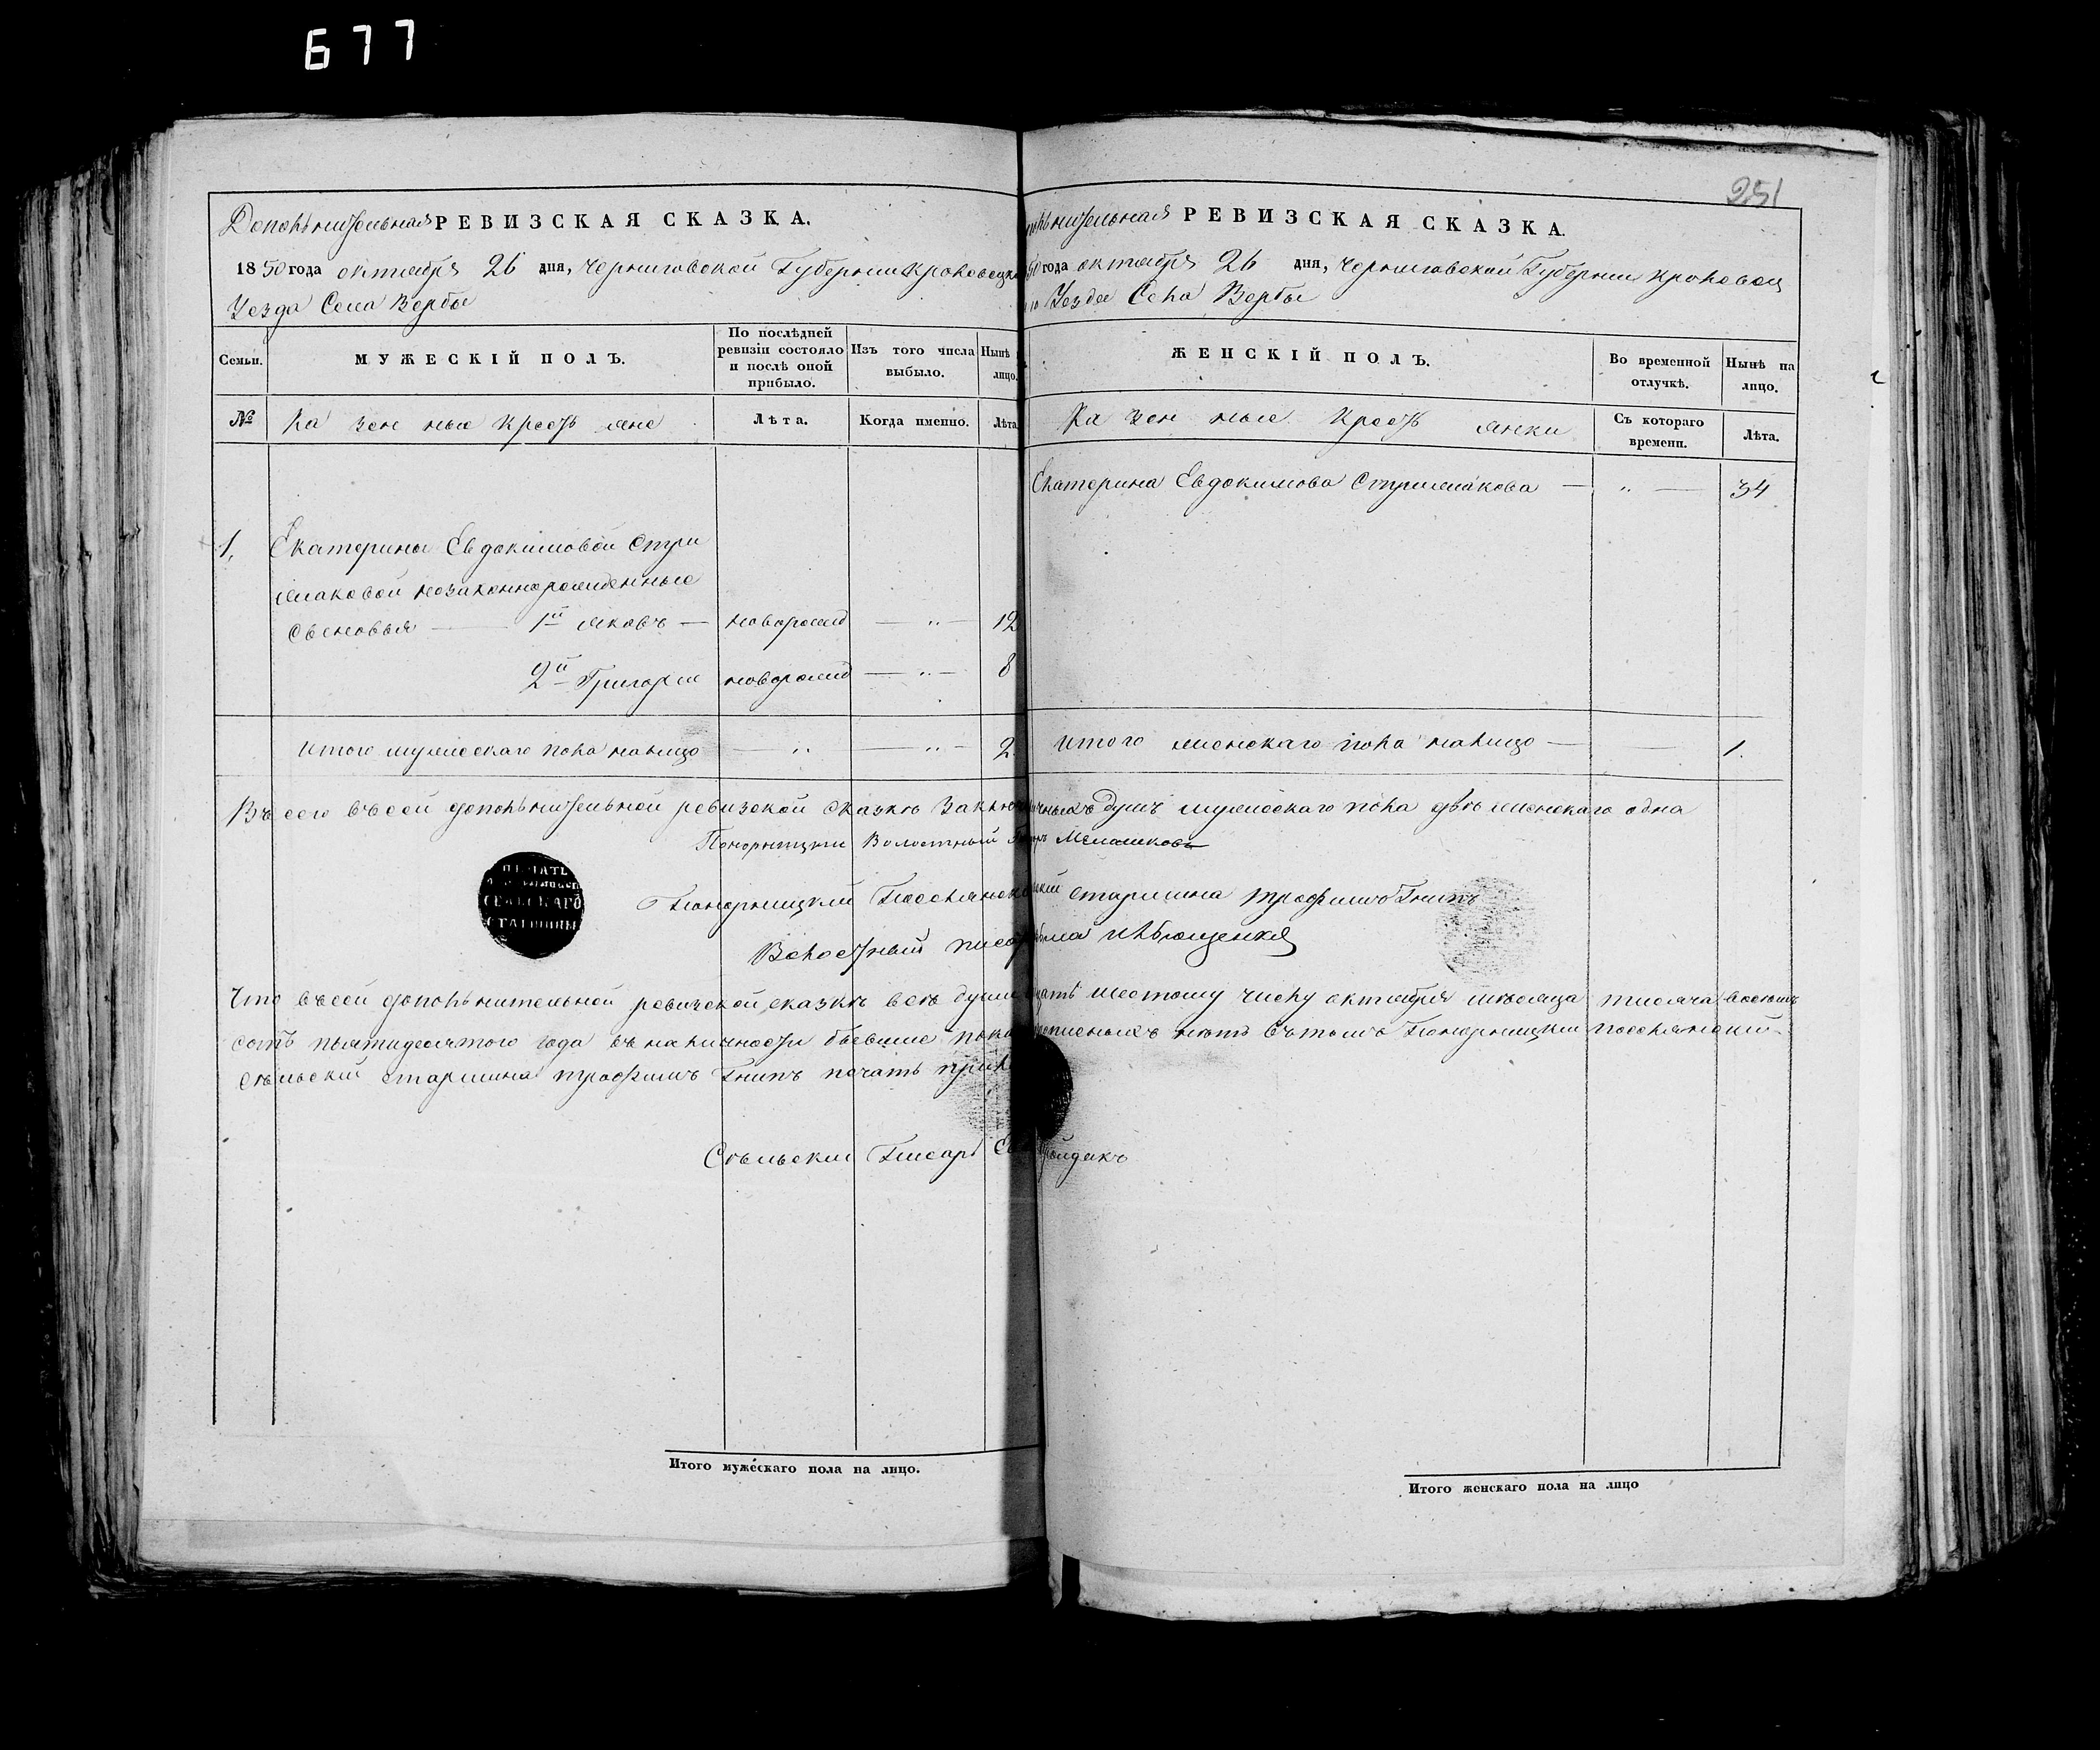 677
251
Дополнительная РЕВИЗСКАЯ СКАЗКА.
1850 года октября 26 дня, Черниговской Губернии Кролевецка
Уезда Села Вербы
Семьи.
МУЖЕСКІЙ ПОЛЪ.
По послѣдней ревизіи состояло и послѣ оной прибыло.
Изъ того числа выбыло.
Нынѣ на лицо.
№
Казенные Крестьяне
Лѣта.
Когда именно.
Лѣта
1. Екатерины Евдокимовой Стри
жаковой незаконнорожденные
сыновья — 1й Яковъ — новорожд — „ — 12
2й Григорий новорожд — „ — 8
Итого мужескаго пола налицо — „ — „ — 2
РЕВИЗСКАЯ СКАЗКА.
50 года октября 26 дня, Черниговской Губернии Кролевец
Уезда Села Вербы
ЖЕНСКІЙ ПОЛЪ.
Во временной отлучкѣ.
Нынѣ на лицо.
Казенные Крестьянки
Съ котораго времени.
Лѣта.
Екатерина Евдокимова Стрижакова — „ — 34
Итого женскаго пола налицо — — 1.
Въсего въсей дополнительной ревизской сказке Заключ душъ мужескаго пола две женскаго одна
Понорницкий Волостный
ПЕЧАТЬ
СЕЛЬСКАГО
СТАРШИНЫ
Понорницкий старшина Трофимъ Гнипъ
Волостный писарь
Что въсей дополнительной ревизской сказкѣ всѣ души шестому числу октября мѣсяца тисяча восемь
сотъ пьятидесятого года въналичности бывшие нѣтъ вътомъ Понорницкий
Сѣльский старшина Трофимъ Гнипъ печать
Сѣльский Писарь
Итого мужескаго пола на лицо.
Итого женскаго пола на лицо